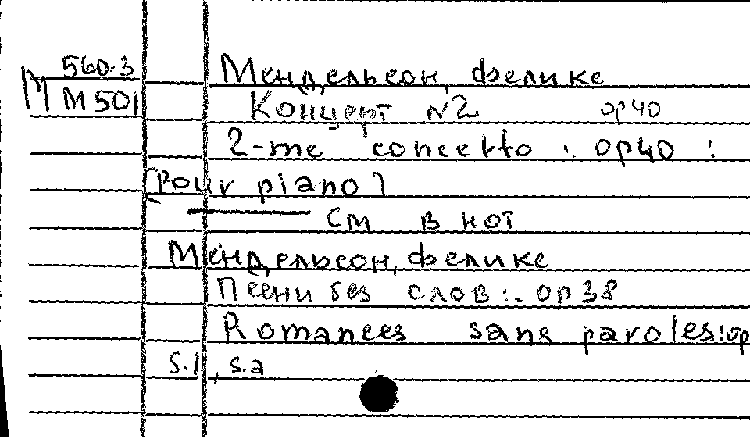 560-3 Мендельсон, Феликс
М М501 Концерт №2 ор40
2-me concerto : op40 :
[Pour piano]
См в нот
Мендельсон, Феликс
Песни без слов:. ор38
Romances sans paroles:op
S.l, S.a